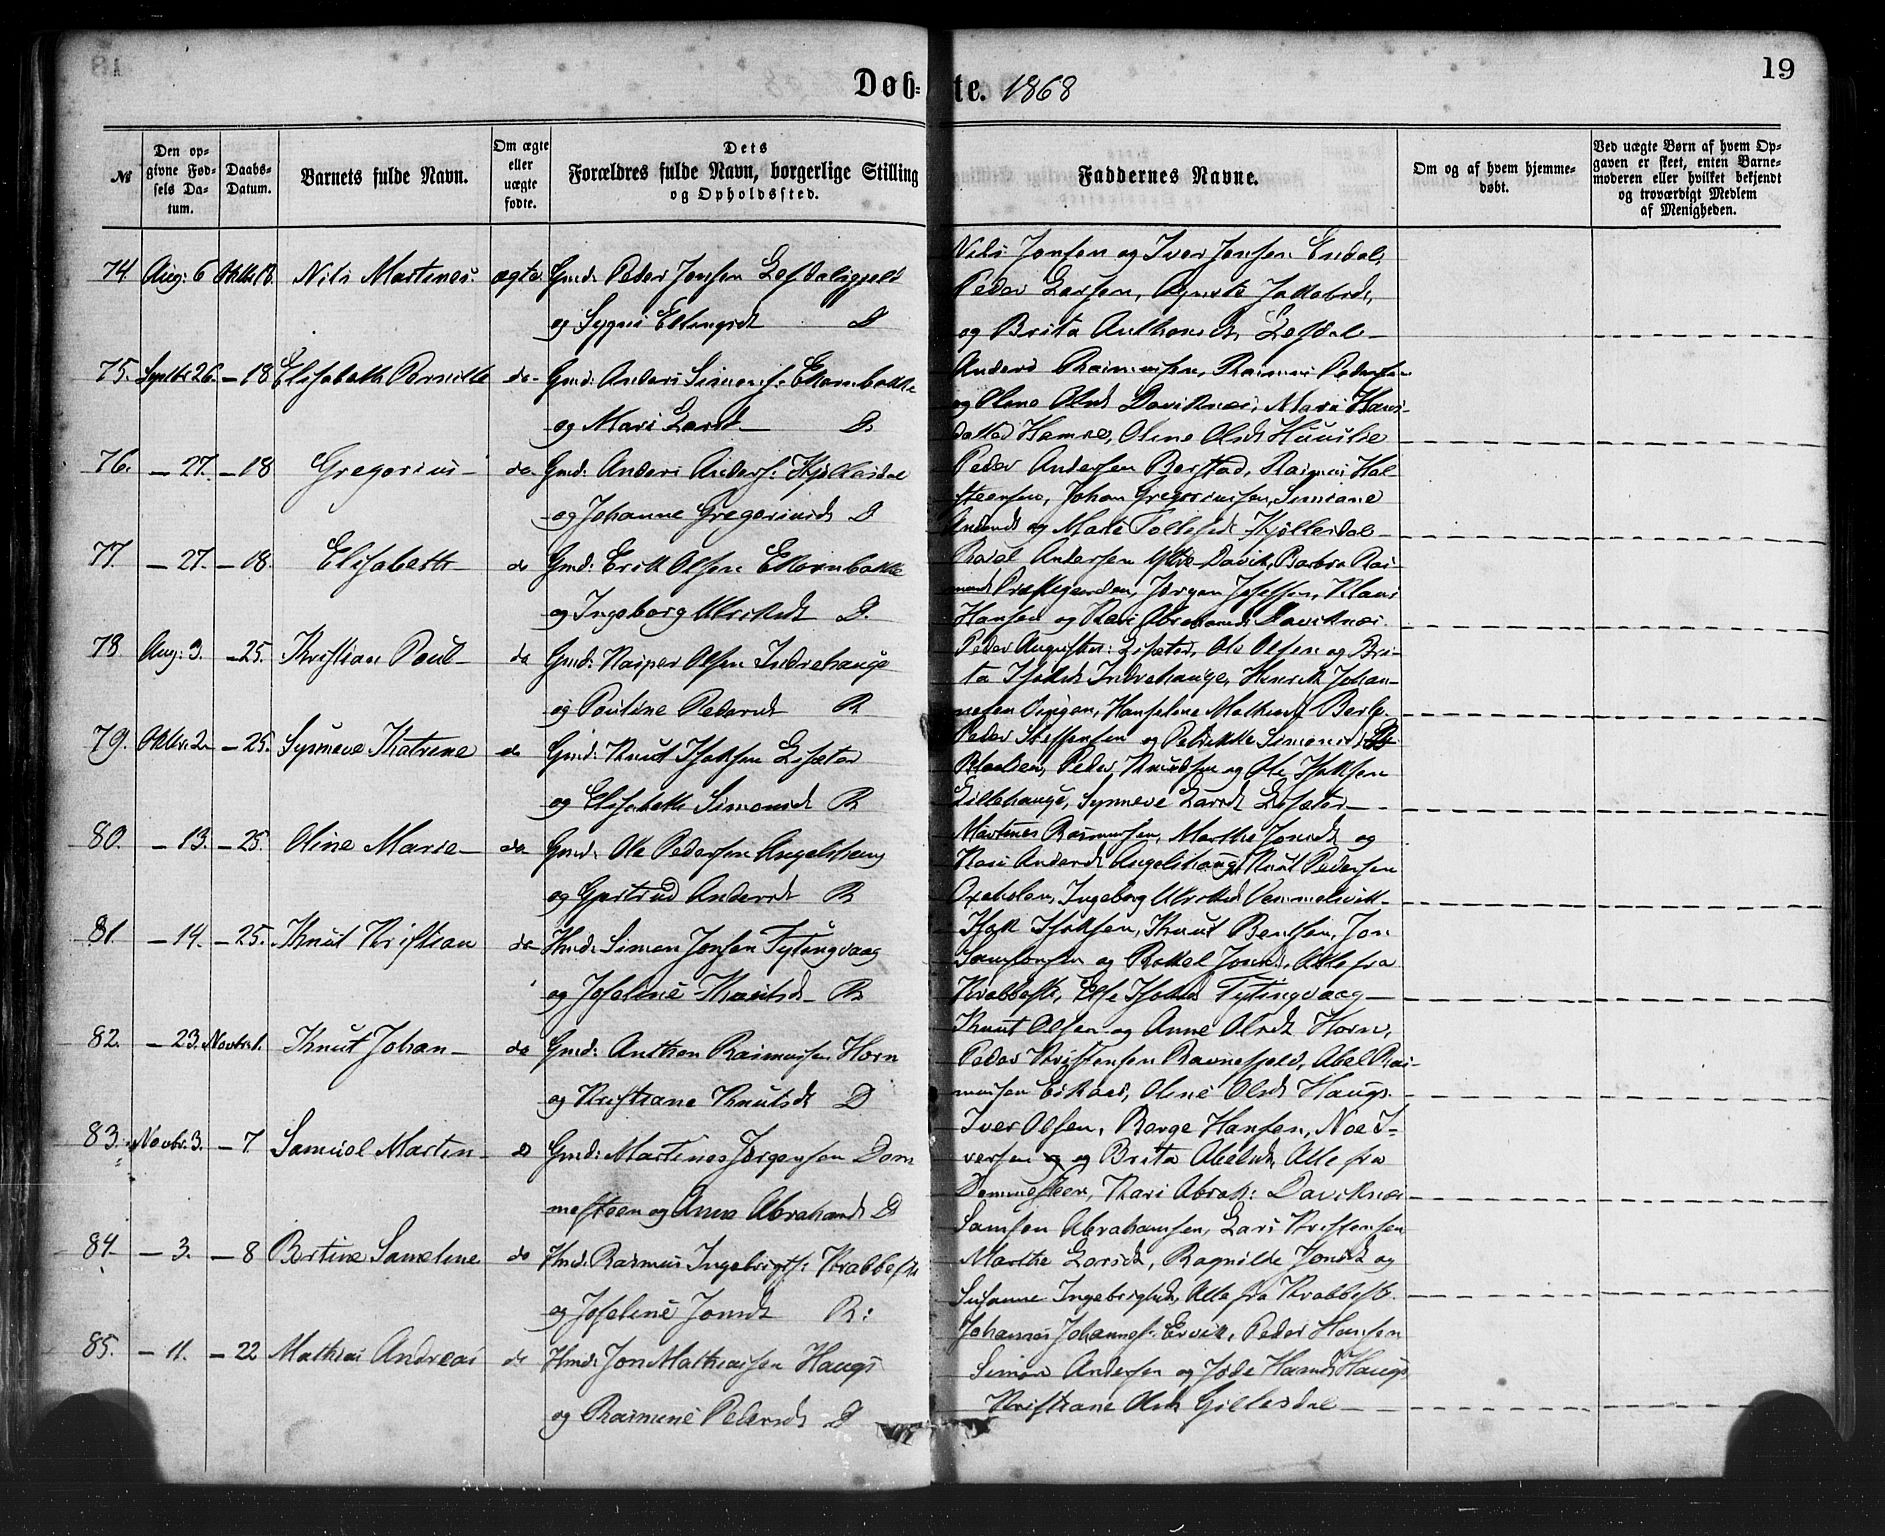 19
Døbte. 1868
№
Den opgivne Fødsels Datum.
Daabs-Datum.
Barnets fulde Navn.
Om ægte eller uægte fødte.
Dets Forældres fulde Navn, borgerlige Stilling og Opholdssted.
Faddernes Navne.
Om og af hvem hjemmedøbt.
Ved uægte Børn af hvem Opgaven er skeet, enten Barnemoderen eller hvilket bekjendt og troværdigt Medlem af Menigheden.
74 Aug: 6 Oktb 18. Nils Martines. ægte Gmd: Peder Jonsen
og D
Nils Jonsen og Iver Jonsen Endal,
Peder Larsen, Jakobsd,
og Brita Anthonsd, Lefdal
75. Septbr 26. – 18 Elisabeth Pernille do Gmd: Anders Simons: Ekornbakke
og Mari Larsd D.
Anders Rasmussen, Rasmus Pedersen
og Olene Olsd Daviknæs, Mari Hans-
datter Hamre, Oline Olsd
76. – 27. – 18 Gregorius do Gmd: Anders Anders:
og Johanne Gregoriusd D
Peder Andersen Berstad, Rasmus Hal-
steensen, Johan Gregoriussen, Simiane
Andersd og Mari
77. – 27. – 18. Elisabeth do Gmd: Erik Olsen Ekornbakke
og Ingeborg Ulriksd D.
Andersen Ytre Davik, Barbra Ras-
musd Præstegaarden, Jørgen Josefsen, Klaus
Hansen og Abrahamsd Daviknæs.
78 Aug: 3. – 25. Kristian Poul do Gmd: Kasper Olsen Indrehauge
og Pouline Pedersd R
Peder Lisæter, Ole Olsen og Bri-
ta Isaksd Indrehauge, Henrik Johan-
nesen Vingen, Hanseline Mathiasd Berle.
79. Oktbr. 2 – 25. Synneve Katrine do Gmd: Knut Isaksen Lisæter
og Elisabeth Simonsd R
Peder Steffensen og Petrikke Simonsd
Peder Knudsen og Ole Isaksen
Lillehauge, Synneve Larsd Lisæter
80. – 13. – 25. Oline Marie do Gmd: Ole Pedersen Angelshaug
og Gjertrud Andersd R
Martines Rasmussen, Marthe Jonsd og
Kari Andersd Angelshaug, Knut Pedersen
Oxeholen, Ingeborg Ulriksd Vemmelsvik
81. – 14. – 25. Knut Kristian do Hmd: Simon Jonsen Fytingvaag
og Josefine Knutsd R
Isak Isaksen, Knut Bentsen, Jon
Samsonsen og Rakel Jonsd, Alle fra
Krabbest., Else Isaksd Fytingvaag
82. – 23. Novbr 1. Knut Johan do Gmd: Anthon Rasmussen Horn
og Kristiane Knutsd D
Knut Olsen og Anne Olsd Horn,
Peder Kristensen Ravnefjeld, Abel Ras-
mussen Oline Olsd Haugs.
83. Novbr. 3. – 7 Samuel Martin do Gmd: Martines Jørgensen Dom-
mesteen og Anna Abrahamsd D
Iver Olsen, Børge Hansen, Noe I-
versen og Brita Abelsd, Alle fra
Dommesteen, Kari Abrah: Daviknæs
84. – 3. – 8 Bertine Sameline do Hmd: Rasmus Ingebrigts: Krabbest
og Josefine Jonsd R:
Samson Abrahamsen, Lars Kristensen
Marthe Larsd, Ragnilde Jonsd og
Susanne Ingebrigtsd, Alle fra Krabbest.
85. – 11. – 22 Mathias Andreas do Hmd: Jon Mathiassen Haugs
og Rasmine Pedersd D
Johannes Johannes: Ervik, Peder Hansen
Simon Andersen og Hansd Haugs
Kristiane Olsd Gillesdal